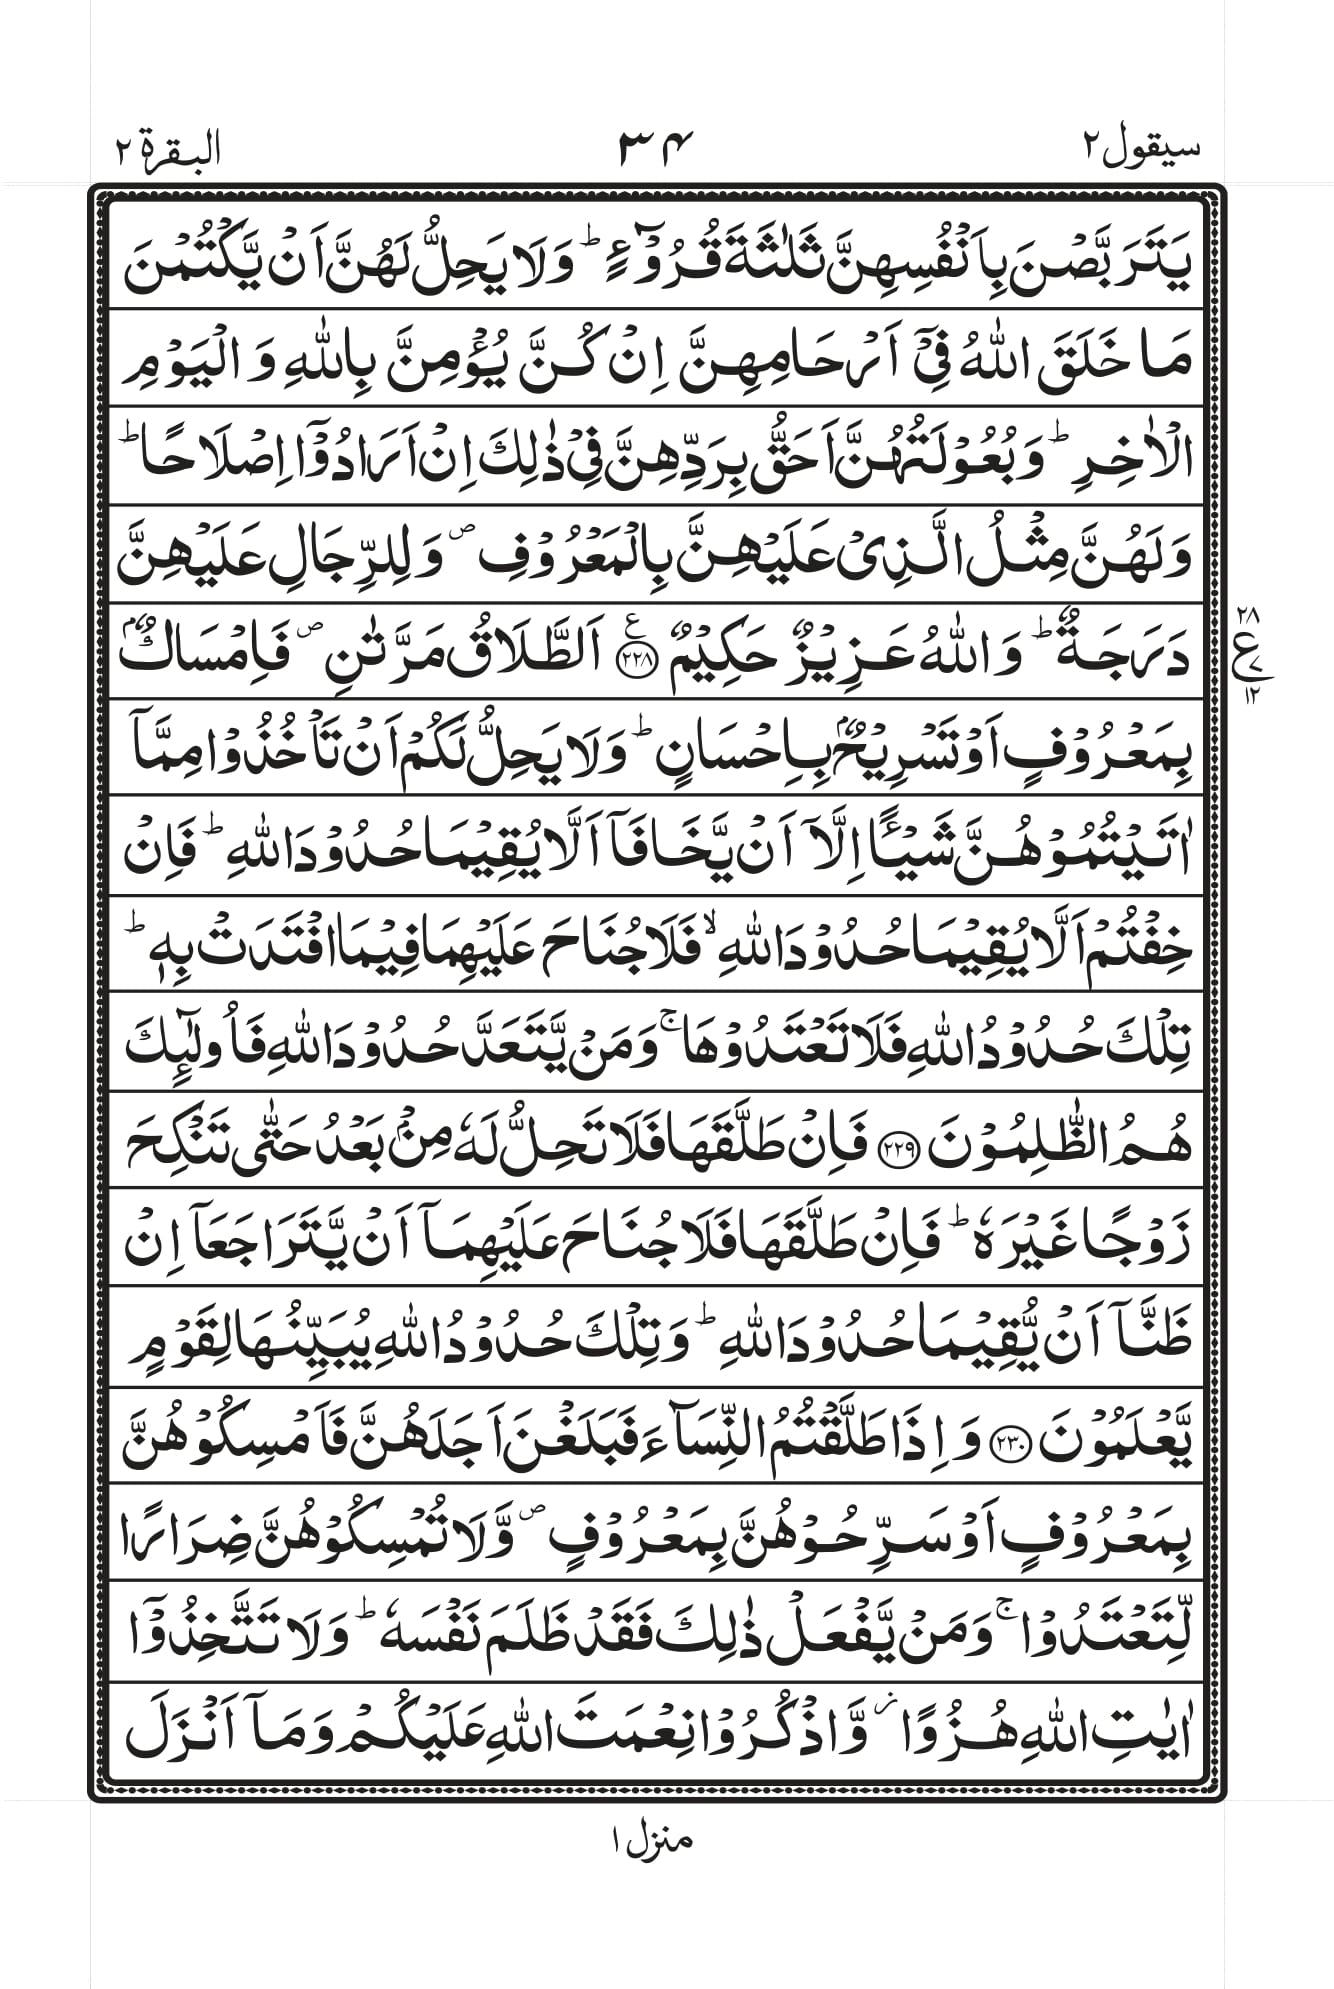 سیقول ٢
٣۴
البقرة ٢
یَتَرَبَّصْنَ بِاَنْفُسِهِنَّ ثَلٰثَةَ قُرُوْٓءٍ ؕ وَلَا یَحِلُّ لَهُنَّ اَنْ یَّكْتُمْنَ
مَا خَلَقَ اللّٰهُ فِیْۤ اَرْحَامِهِنَّ اِنْ كُنَّ یُؤْمِنَّ بِاللّٰهِ وَ الْیَوْمِ
الْاٰخِرِ ؕ وَبُعُوْلَتُهُنَّ اَحَقُّ بِرَدِّهِنَّ فِیْ ذٰلِكَ اِنْ اَرَادُوْۤا اِصْلَاحًا ؕ
وَلَهُنَّ مِثْلُ الَّذِیْ عَلَیْهِنَّ بِالْمَعْرُوْفِ ۪ وَلِلرِّجَالِ عَلَیْهِنَّ
دَرَجَةٌ ؕ وَاللّٰهُ عَزِیْزٌ حَكِیْمٌ ۧ ﴿٢٢٨﴾ اَلطَّلَاقُ مَرَّتٰنِ ۪ فَاِمْسَاكٌۢ
بِمَعْرُوْفٍ اَوْ تَسْرِیْحٌۢ بِاِحْسَانٍ ؕ وَلَا یَحِلُّ لَكُمْ اَنْ تَاْخُذُوْا مِمَّاۤ
اٰتَیْتُمُوْهُنَّ شَیْـًٔا اِلَّاۤ اَنْ یَّخَافَاۤ اَلَّا یُقِیْمَا حُدُوْدَ اللّٰهِ ؕ فَاِنْ
خِفْتُمْ اَلَّا یُقِیْمَا حُدُوْدَ اللّٰهِ ۙ فَلَا جُنَاحَ عَلَیْهِمَا فِیْمَا افْتَدَتْ بِهٖ ؕ
تِلْكَ حُدُوْدُ اللّٰهِ فَلَا تَعْتَدُوْهَا ۚ وَمَنْ یَّتَعَدَّ حُدُوْدَ اللّٰهِ فَاُولٰٓىِٕكَ
هُمُ الظّٰلِمُوْنَ ﴿٢٢٩﴾ فَاِنْ طَلَّقَهَا فَلَا تَحِلُّ لَهٗ مِنْۢ بَعْدُ حَتّٰی تَنْكِحَ
زَوْجًا غَیْرَهٗ ؕ فَاِنْ طَلَّقَهَا فَلَا جُنَاحَ عَلَیْهِمَاۤ اَنْ یَّتَرَاجَعَاۤ اِنْ
ظَنَّاۤ اَنْ یُّقِیْمَا حُدُوْدَ اللّٰهِ ؕ وَتِلْكَ حُدُوْدُ اللّٰهِ یُبَیِّنُهَا لِقَوْمٍ
یَّعْلَمُوْنَ ﴿٢٣٠﴾ وَاِذَا طَلَّقْتُمُ النِّسَآءَ فَبَلَغْنَ اَجَلَهُنَّ فَاَمْسِكُوْهُنَّ
بِمَعْرُوْفٍ اَوْ سَرِّحُوْهُنَّ بِمَعْرُوْفٍ ۪ وَّلَا تُمْسِكُوْهُنَّ ضِرَارًا
لِّتَعْتَدُوْا ۚ وَمَنْ یَّفْعَلْ ذٰلِكَ فَقَدْ ظَلَمَ نَفْسَهٗ ؕ وَلَا تَتَّخِذُوْۤا
اٰیٰتِ اللّٰهِ هُزُوًا ؗ وَّاذْكُرُوْا نِعْمَتَ اللّٰهِ عَلَیْكُمْ وَمَاۤ اَنْزَلَ
٢٨
ع
٧
١٢
منزل ١